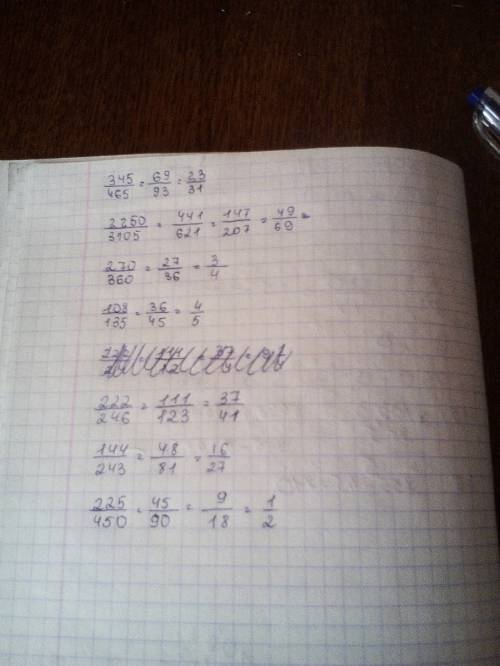 345/465 = 69/93 = 23/31
2250/3105 = 441/621 = 147/207 = 49/69 =
270/360 = 27/36 = 3/4
108/135 = 36/45 = 4/5
222/246 = 111/123 = 37/41
144/243 = 48/81 = 16/27
225/450 = 45/90 = 9/18 = 1/2